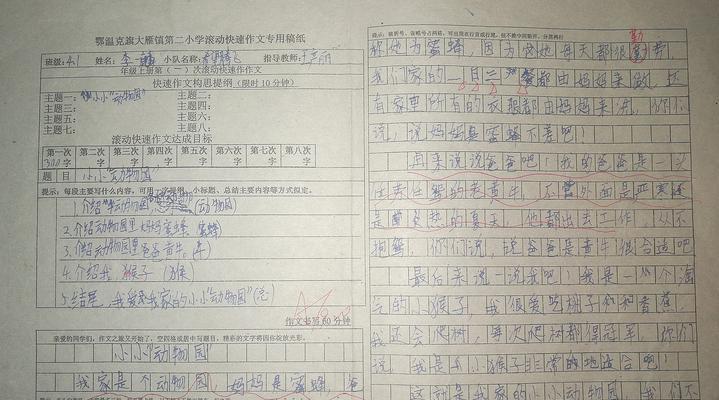 鄂温克旗大雁镇第二小学滚动快速作文专用稿纸
班级:4.1 姓名:李一 小队名称: 腾飞 指导教师:
年级上册第(一)次滚动快速作文
快速作文构思提纲(限时10分钟)
主题一: 小小“动物园” 主题二:
主题三: 主题四:
主题五: 主题六:
主题七: 主题八:
滚动快速作文达成目标
第一次 第二次 第三次 第四次 第五次 第六次 第七次 第八次
300字 字 字 字 字 字 字 字
题目 小小“动物园”
提示:每段主要写什么内容,可用 小标题、总结主要内容等方式拟定。
1.介绍“动物园 (动物园)
2.介绍动物园里 妈妈蜜蜂 蜜蜂
3.介绍动物园里爸爸黄牛 (牛)
4.介绍我 猴子 猴
5.结尾,我爱我家的小小“动物园”
作文书写60分钟
亲爱的同学们,作文之旅又开始了,空四格或居中写题目,精彩的文字将因你绽放光彩。
小小“动物园”
我家是个动物园,妈妈是蜜蜂,爸
称她为蜜蜂,因为她每天都很勤费,
我们家的一日三餐都由妈妈来做,还
有家里所有的衣服都由妈妈来洗,你们
说,说妈妈是蜜蜂不差吧!
再来说说爸爸吧!我的爸爸是一头
任劳任怨的老黄牛,不管外面是严寒还
是炎热的夏天,他都出去工作,从不
抱怨,你们说,说爸爸是黄牛很合适吧
最后来说一说我吧!我是一个淘
气的小猴子,我很爱吃桃子和香蕉,
我还会爬树,每次爬树都得冠军,你们
说,我是个小猴子非常的地适合吧!
这就是我家的小小动物园,我们不